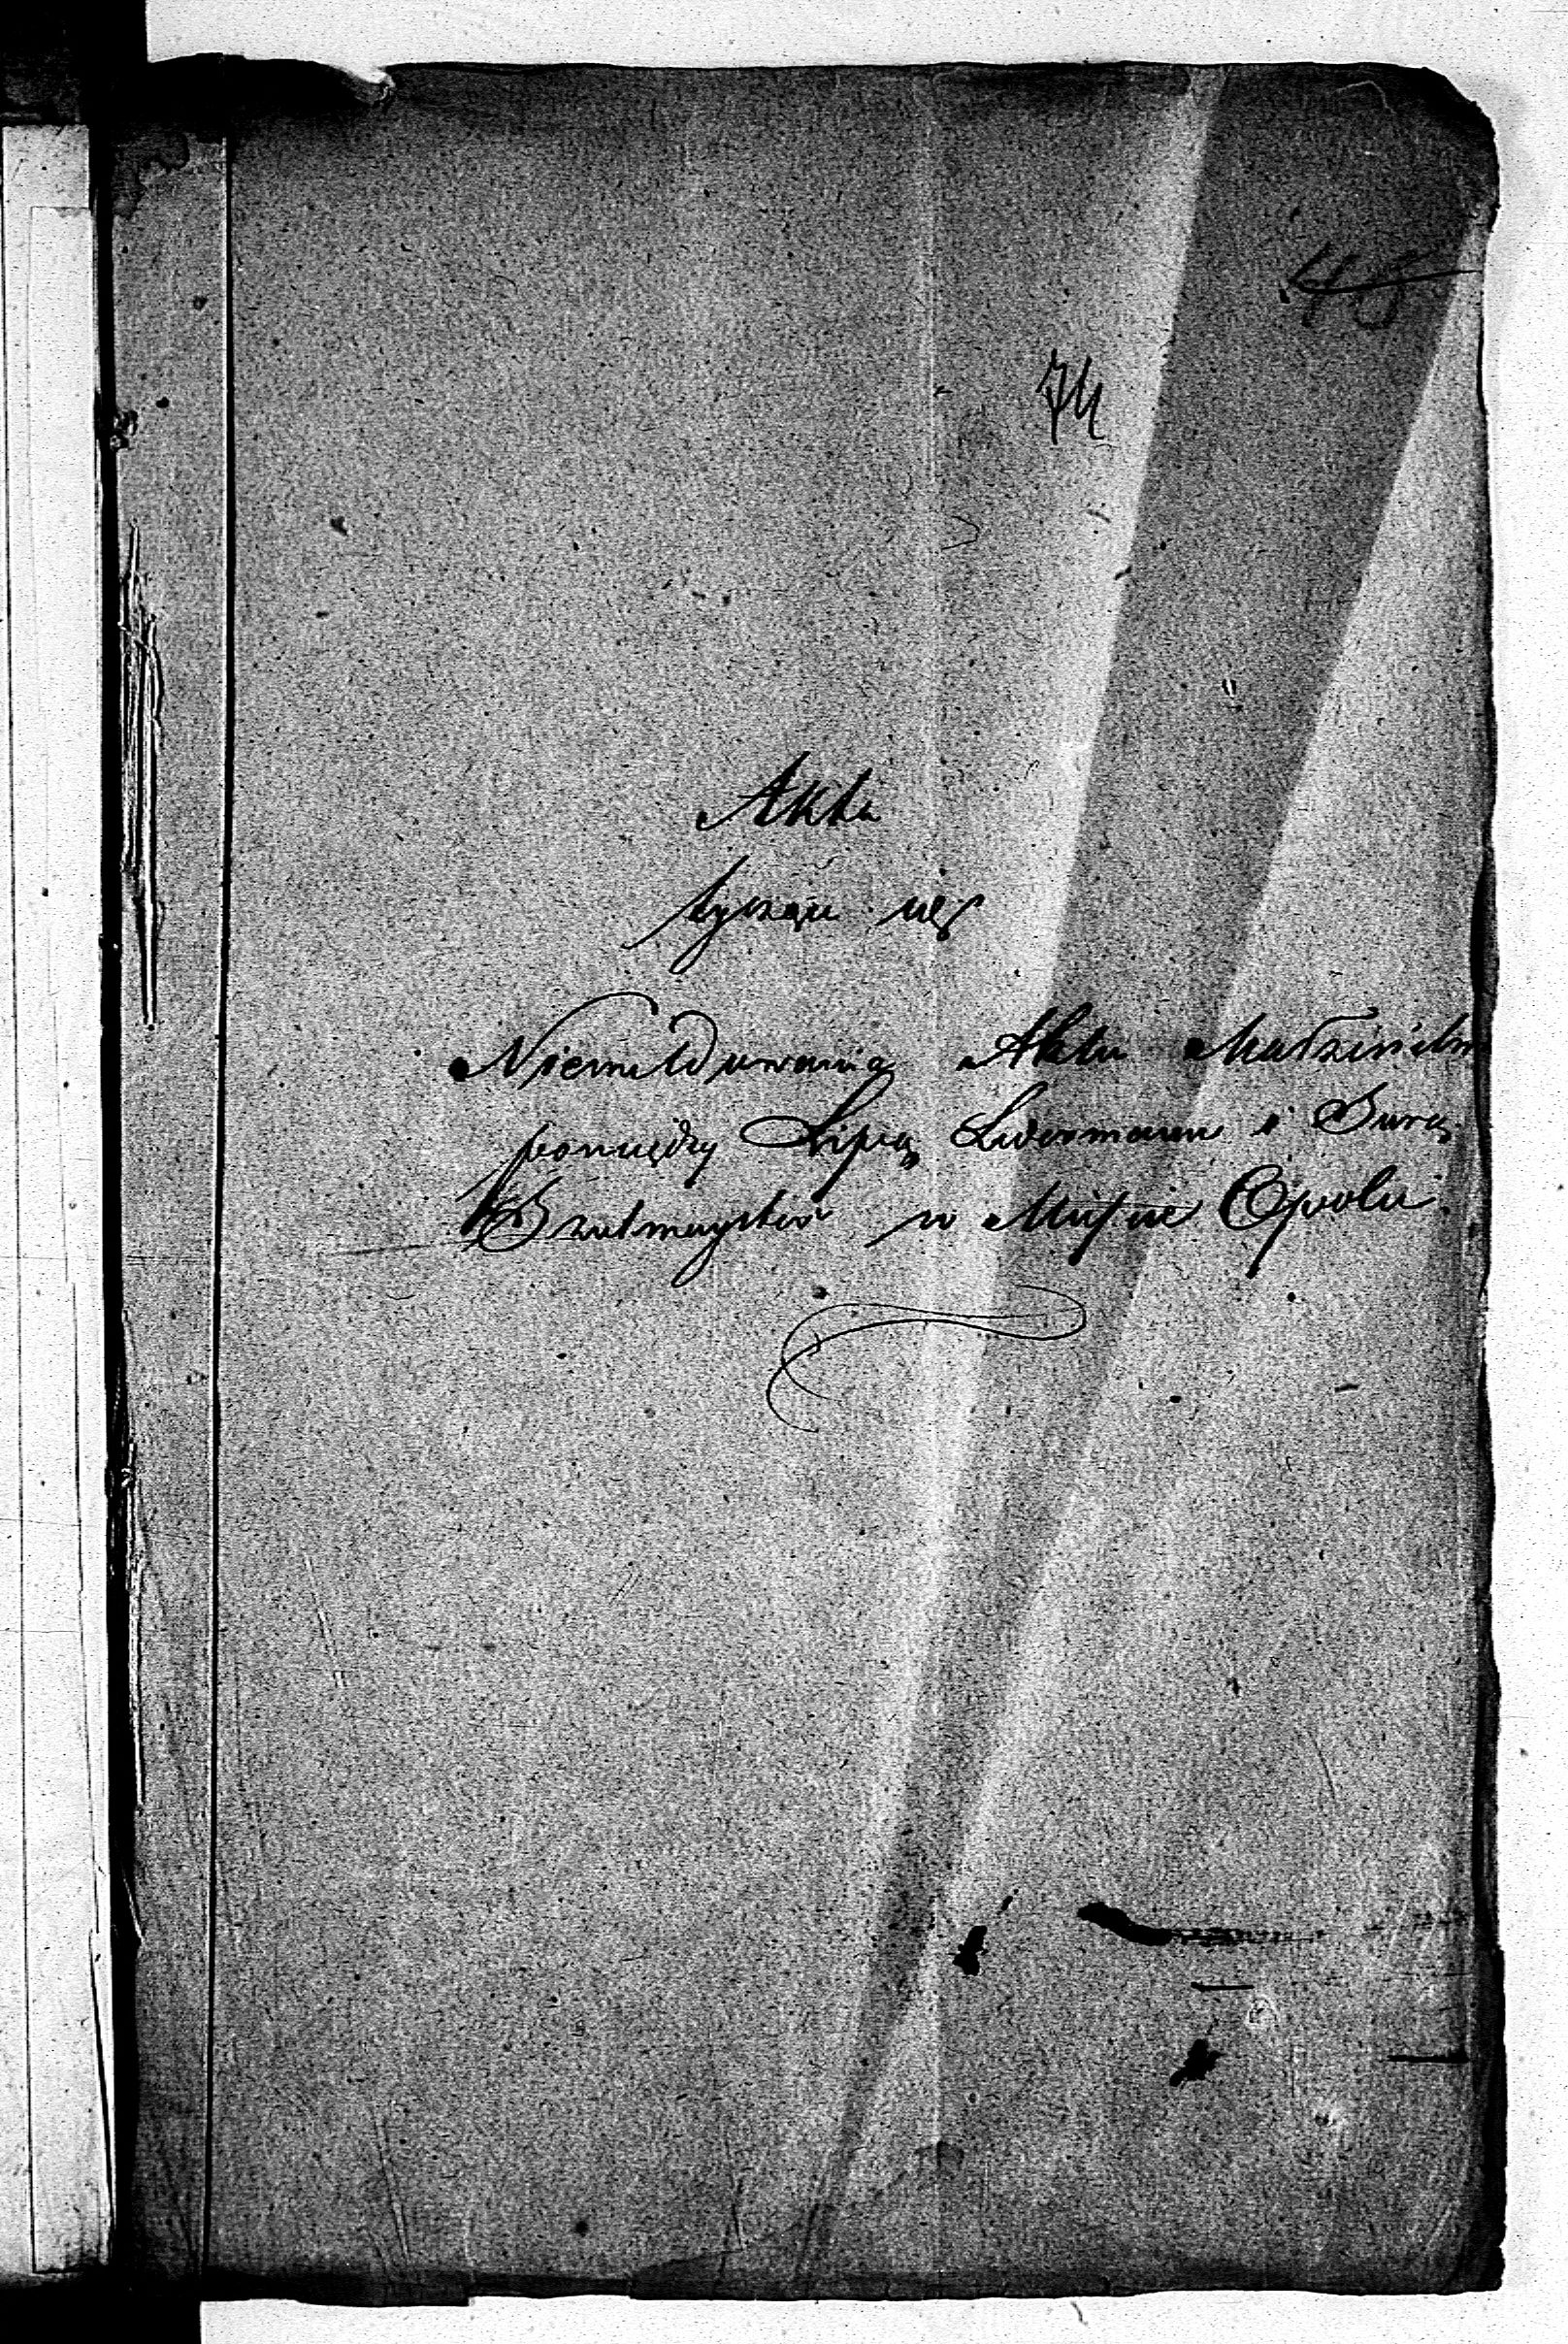 48
74
Akta
tyczące się
Niemeldowania Aktu Małżeństw
pomiędzy Lipą Lidermanem i Surą
w Mieście Opolu.